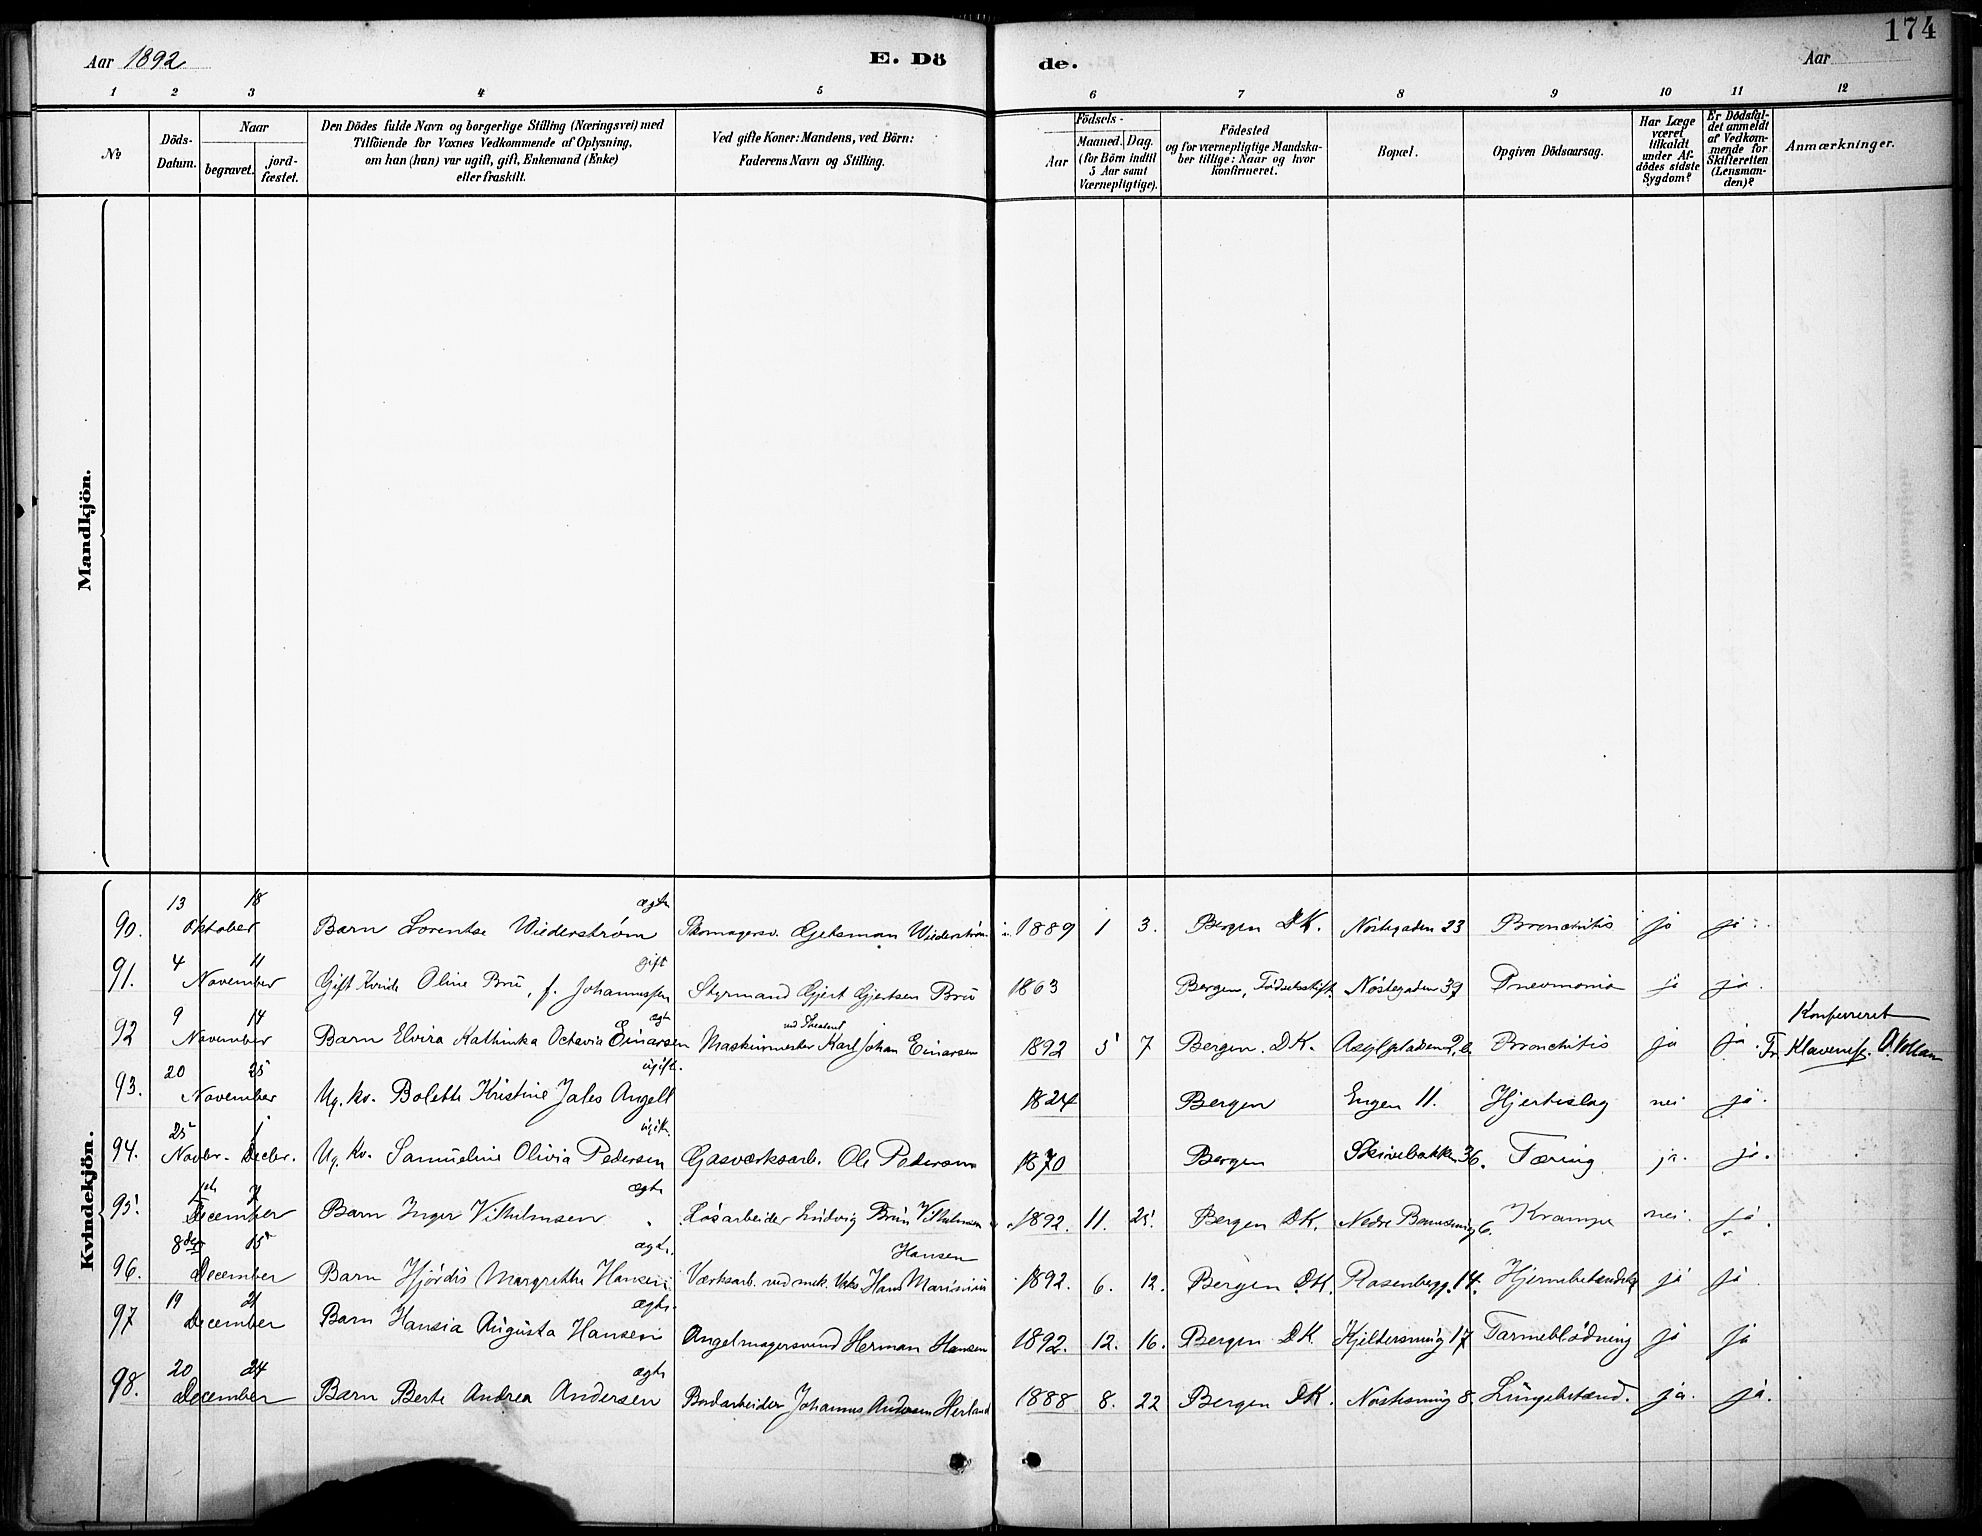 174
Aar 1892
E. Dö
de.
Aar
1 2 3 4 5 6 7 8 9 10 11 12
No
Döds-Datum.
Naar
begravet.
jord-fæstet.
Den Dödes fulde Navn og borgerlige Stilling (Næringsvei) med
Tilföiende for Voxnes Vedkommende af Oplysning,
om han (hun) var ugift, gift, Enkemand (Enke)
eller fraskilt.
Ved gifte Koner: Mandens, ved Börn:
Faderens Navn og Stilling.
Födsels-
Aar
Maaned. Dag.
(for Börn indtil
5 Aar samt
Værnepligtige).
Födested
og for værnepligtige Mandska-
ber tillige: Naar og hvor
konfirmeret.
Bopæl.
Opgiven Dödsaarsag.
Har Læge
været
tilkaldt
under Af-
dödes sidste
Sygdom?
Er Dödsfal-
det anmeldt
af Vedkom-
mende for
Skifteretten
(Lensman-
den)?
Anmærkninger.
Mandkjön.
Kvindekjön.
13 18 ægte
90. Oktober Barn Lorentse Wiederstrøm Skomagersv. Getsman Wiederstrøm 1889 1 3. Bergen DK. Nöstegaden 23 Bronchitis ja ja.
4 11 gift
91. November Gift Kvinde Oline Bru, f. Johannessen Styrmand Gjert Gjertsen Bru 1863 Bergen, Födselsstift. Nöstegaden 39 Pneumonia ja ja.
9 14 ægte ved Theatret Konfereret
92 November Barn Elvira Kathinka Octavia Einarsen Maskinmester Karl Johan Einarsen 1892 5 7 Bergen. DK. Asylpladsen 2, b Bronchitis ja ja. Fr. Klaveness.
20 25 ugift.
93. November Ug. kv. Bolette Kristine Jales Angell 1824 Bergen Engen 11. Hjerteslag nei ja.
25 1 ugift.
94. Novbr. Decbr. Ug. kv. Samueline Olivia Pedersen Gasværksarb. Ole Pedersen 1870 Bergen Skivebakken 36. Tæring ja. ja.
1ste 7 ægte
95. December Barn Inger Vilhelmsen Løsarbeider Ludvig Brun Vilhelmsen 1892. 11. 25. Bergen DK. Nedre 6. Krampe nei. ja.
8de 15 ægte. Hansen
96. December Barn Hjördis Margrethe Hansen Værksarb. ved mek. Verks. Hans Marinius 1892. 6. 12. Bergen DK. Rosenbergg. 14. Hjernebetændelse ja ja
19 21 ægte.
97 December Barn Hansia Augusta Hansen Angelmagersvend Herman Hansen 1892. 12. 16. Bergen DK Kjeldersmug 17 Tarmeblödning ja ja
20 24 ægte
98. December Barn Berte Andrea Andersen Bordarbeider Johannes Andersen Herland 1888 8. 22 Bergen DK. Nöstesmug 8. Lungebetænd. ja. ja.